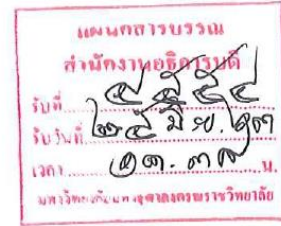 แผนกสารบรรณ
สำนักงานอธิการบดี
รับที่
รับวันที่ ๒๕ มิ.ย.
เวลา ๑๓.๓๗ น.
มหาวิทยาลัยมหาจุฬาลงกรณราชวิทยาลัย